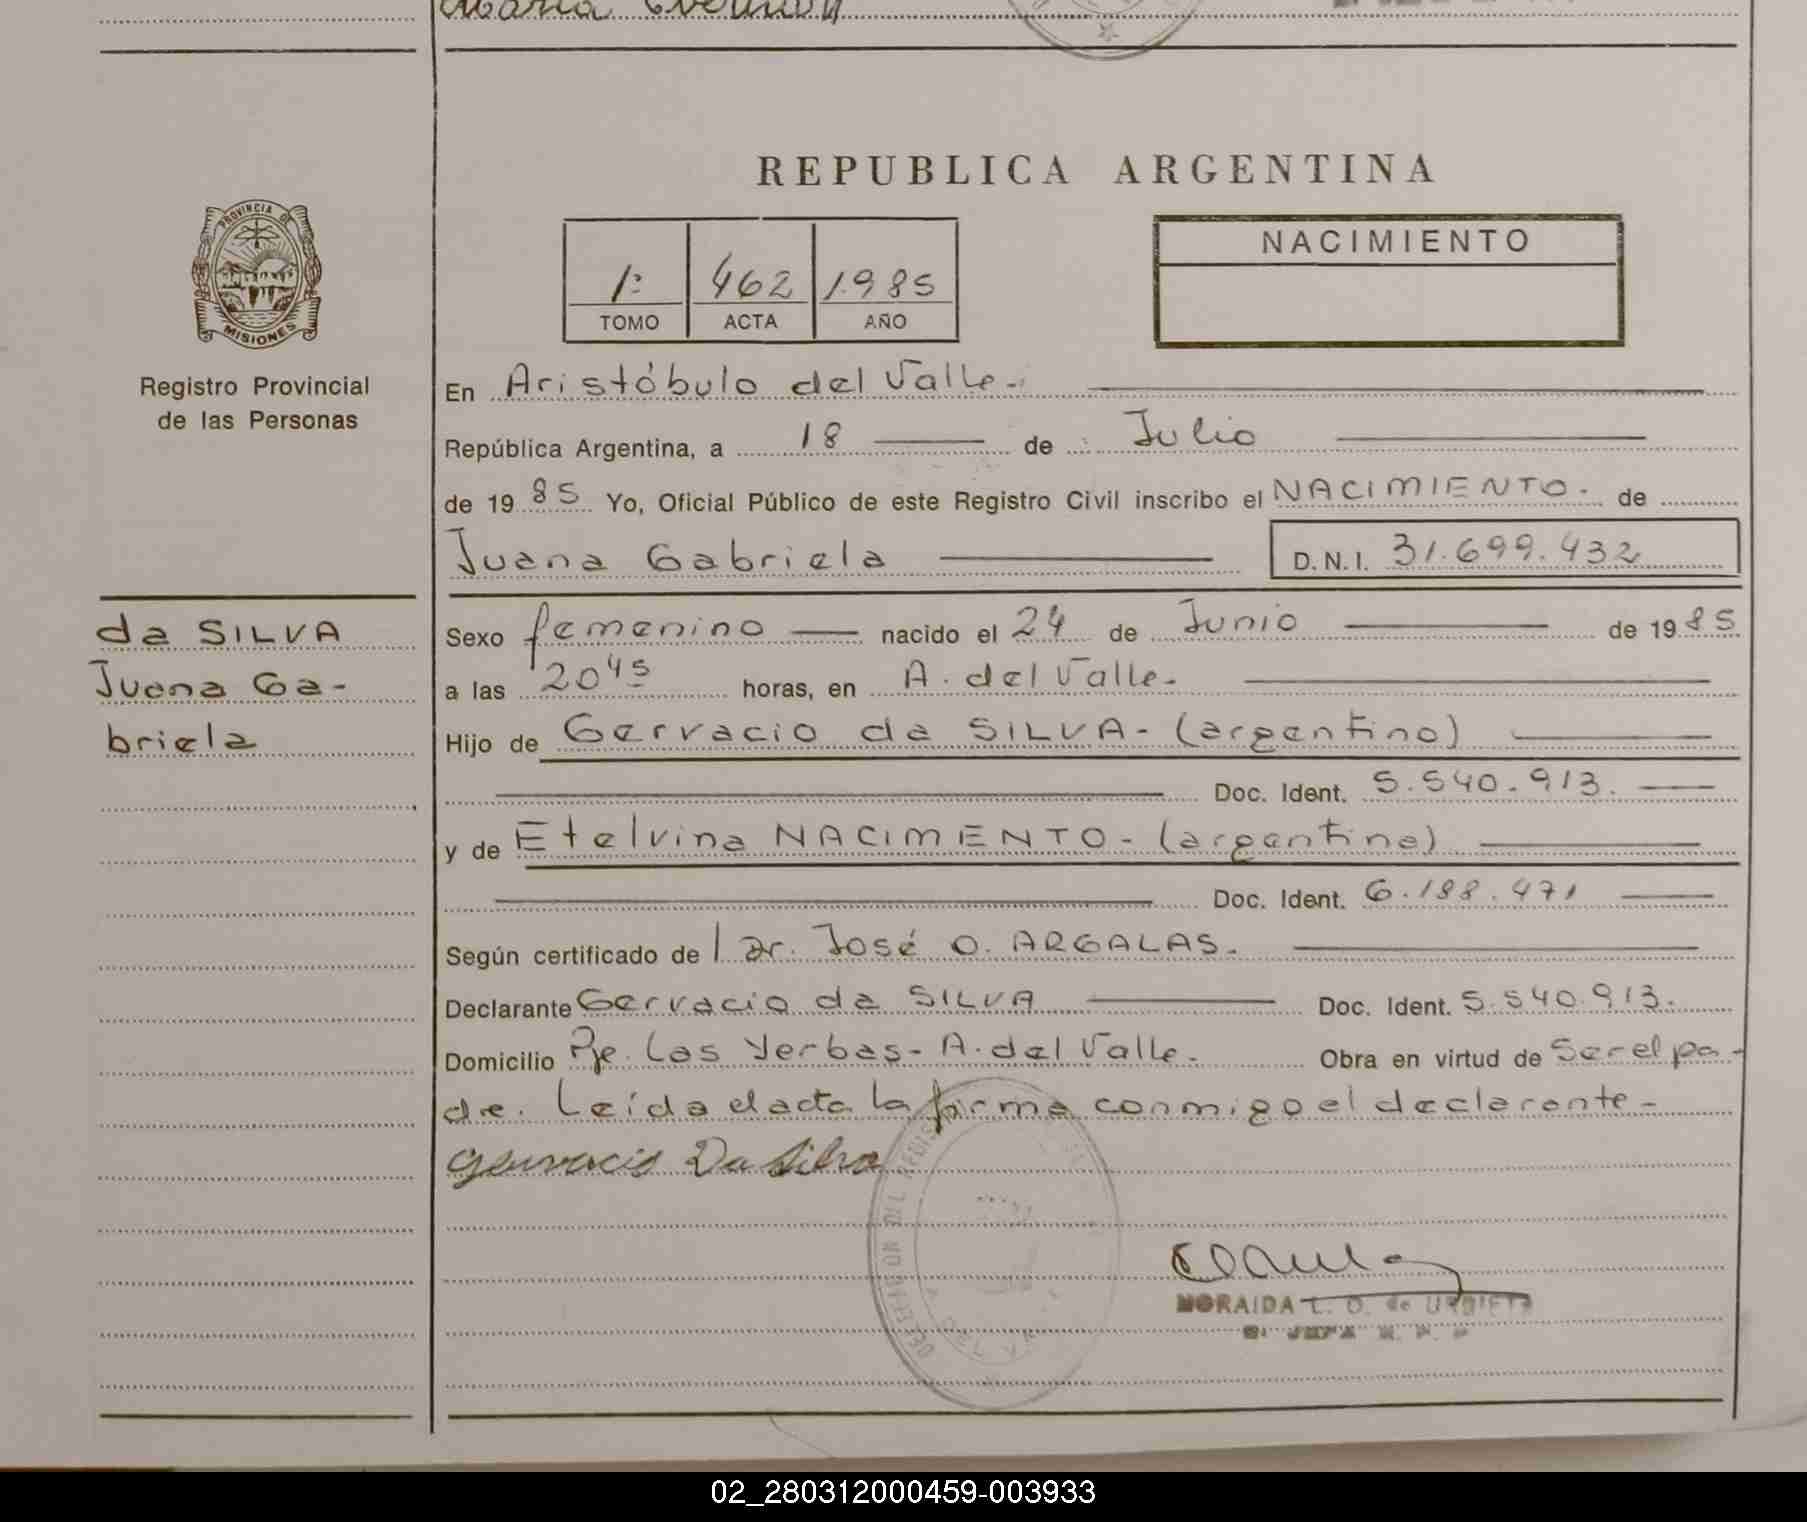 María
REPUBLICA ARGENTINA
PROVINCIA DE
MISIONES
Registro Provincial
de las Personas
1º 462 1985
TOMO ACTA AÑO
NACIMIENTO
En Aristóbulo del Valle.-
República Argentina, a 18 de Julio
de 1985 Yo, Oficial Público de este Registro Civil inscribo el NACIMIENTO. de
Juana Gabriela D.N.I. 31.699.432
da SILVA
Juana Ga-
briela
Sexo femenino nacido el 24 de Junio de 1985
a las 20 45 horas, en A. del Valle.
Hijo de Gervacio da SILVA- (argentino)
Doc. Ident. 5.540.913.
y de Etelvina NACIMENTO- (argentina)
Doc. Ident. 6.188.471
Según certificado de l Dr. José O. ARGALAS.
Declarante Gervacio da SILVA Doc. Ident. 5.540.913.
Domicilio Pje. Las Yerbas- A. del Valle. Obra en virtud de Ser el pa-
dre. Leída el acta la firma conmigo el declarante-
Gervacio Da Silva
DELEGACION DEL REGIS
MORAIDA L. O. de URBIETA
JEFA R. P. P
02_280312000459-003933